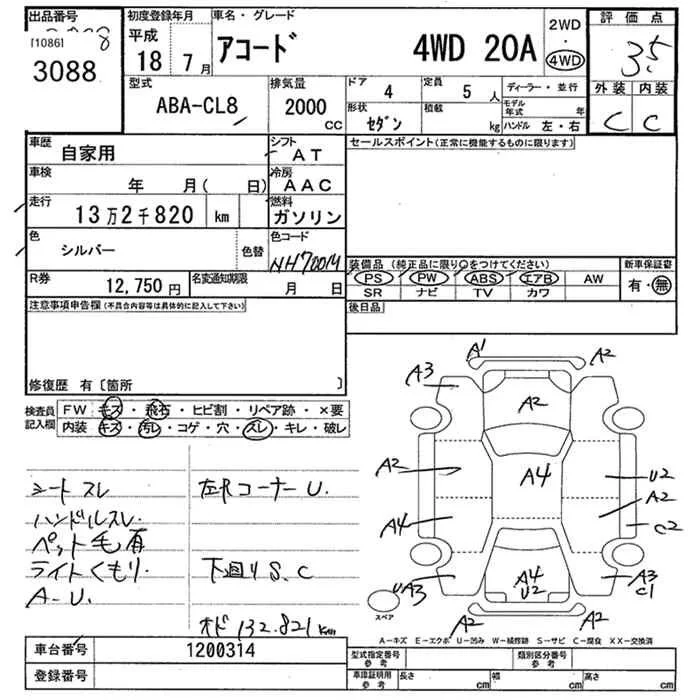 出品番号 初度登録年月 車名・グレード 2WD 評価点
[1086] 平成 アコード 4WD 20A 4WD 3.5
3088 18年 7月 外装 内装
型式 排気量 ドア 定員 ディーラー・並行 C C
ABA-CL8 2000 CC 4 5人 モデル年式 年
形状 セダン 積載 kg ハンドル 左・右
車歴 自家用 シフト AT セールスポイント(正常に機能するものに限ります)
車検 年 月( 日) 冷房 AAC
走行 13万2千820 km 燃料 ガソリン
色 シルバー 色替 色コード NH700M
装備品(純正品に限り○をつけてください) 新車保証書
PS PW ABS エアB AW 有・無
SR ナビ TV カワ
R券 12,750円 名変通知期限 月 日
注意事項申告欄(不具合内容等は具体的に記入して下さい) 後日品
修復歴 有〔箇所 〕
検査員記入欄 FW キズ・飛石・ヒビ割・リペア跡・×要
内装 キズ・汚レ・コゲ・穴・スレ・キレ・破レ
シートスレ
ハンドルスレ.
ペット毛有
ライトくもり.
A-U.
左Rコーナー U.
下廻り S.C
オド 132.821km
A1 A2
A3 A2
A2 A4 U2
A2
A4 C2
UA3 A4 U2 A3 C1
スペア A2 A2
A-キズ E-エクボ U-凹み W-補修跡 S-サビ C-腐食 XX-交換済
車台番号 1200314
登録番号
型式指定番号 参考 類別区分番号 参考
車庫証明用 参考 長さ cm 幅 cm 高さ cm